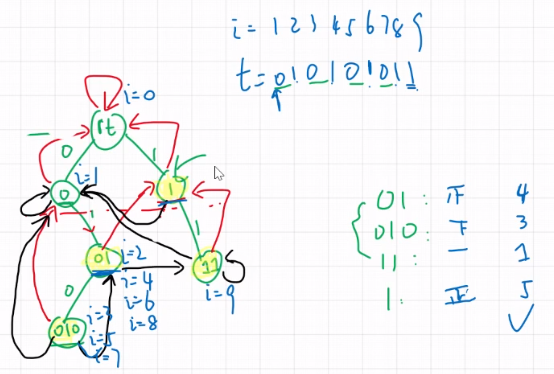 i = 1 2 3 4 5 6 7 8 9
t = 0 1 0 1 0 1 0 1 1
i=0
rt
0
1
i=1
0
1
1
1
01
i=2
i=4
i=6
i=8
11
i=9
0
010
i=3
i=5
i=7
01: 正 4
010: 下 3
11: 一 1
1: 正 5